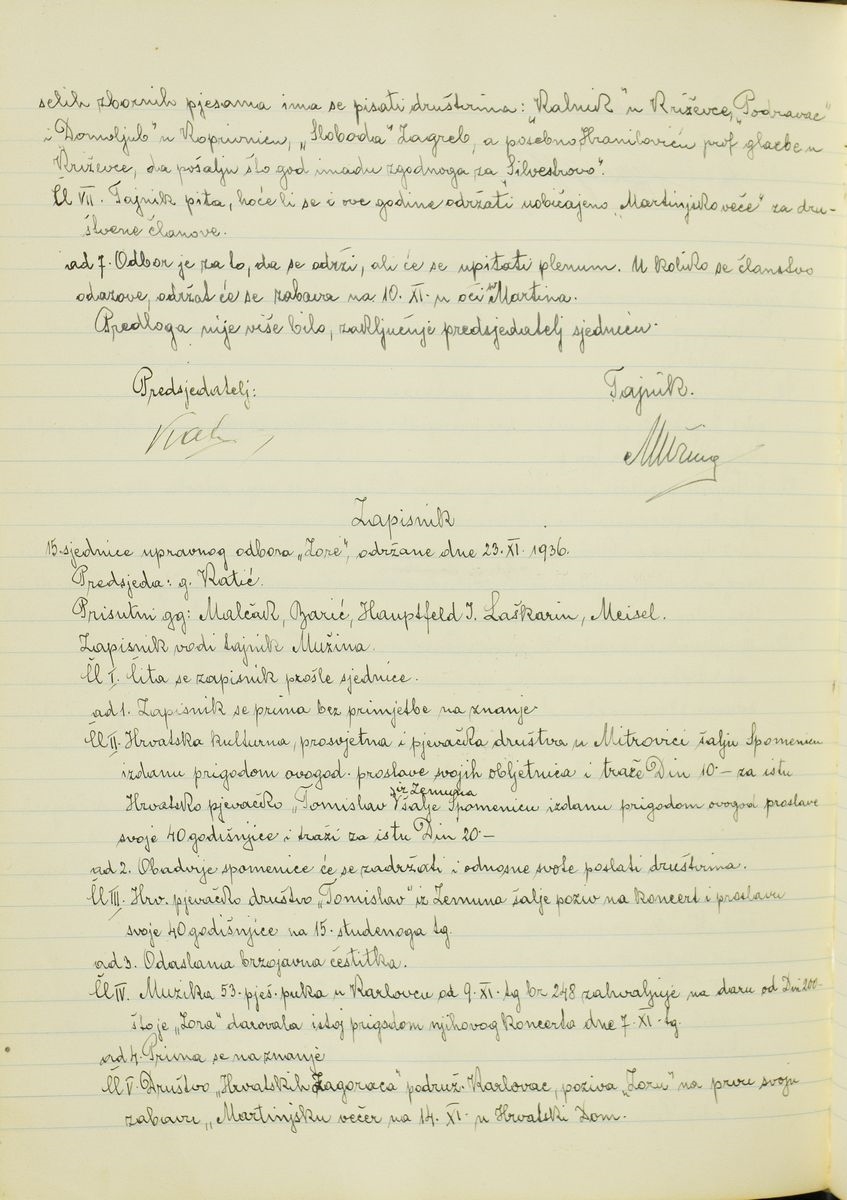 selih zbornih pjesama ima se pisati društvima: „Kalnik" u Križevce, „Podravac"
i Domoljub" u Koprivnicu, „Sloboda" Zagreb, a posebno Hraniloviću prof glazbe u
Križevce, da pošalju što god imadu zgodnoga za „Silvestrovo".
Čl VII. Tajnik pita, hoće li se i ove godine održati uobičajeno „Martinjsko veče" za dru-
štvene članove.
ad 7. Odbor je za to, da se održi, ali će se upitati plenum. U koliko se članstvo
odazove, održat će se zabava na 10. XI. u oči sv Martina.
Predloga nije više bilo, zaključuje predsjedatelj sjednicu.
Predsjedatelj:
Tajnik.
Zapisnik
15. sjednice upravnog odbora „Zore", održane dne 23. XI. 1936.
Predsjeda: g. Katić.
Prisutni gg: Malčak, Barić, Hauptfeld I. Laškarin, Meisel.
Zapisnik vodi tajnik Mužina.
Čl I. Čita se zapisnik prošle sjednice.
ad 1. Zapisnik se prima bez primjetbe na znanje.
Čl II. Hrvatska kulturna, prosvjetna i pjevačka društva u Mitrovici šalju Spomenicu
izdanu prigodom ovogod. proslave svojih obljetnica i traže Din 10.- za istu
Hrvatsko pjevačko „Tomislav iz Zemuna šalje Spomenicu izdanu prigodom ovogod proslave
svoje 40 godišnjice i traži za istu Din 20.-
ad 2. Obadvije spomenice će se zadržati i odnosne svote poslati društvima.
Čl III. Hrv. pjevačko društvo „Tomislav" iz Zemuna šalje poziv na koncert i proslavu
svoje 40 godišnjice na 15. studenoga tg.
ad 3. Odaslana brzojavna čestitka.
Čl IV. Muzika 53. pješ. puka u Karlovcu od 9. XI. tg br 248 zahvaljuje na daru od Din 200.-
što je „Zora" darovala istoj prigodom njihovog koncerta dne 7. XI. tg.
ad 4. Prima se na znanje
Čl V. Društvo „Hrvatskih Zagoraca" podruž. Karlovac, poziva „Zoru" na prvu svoju
zabavu „Martinjsku večer na 14. XI. u Hrvatski Dom.